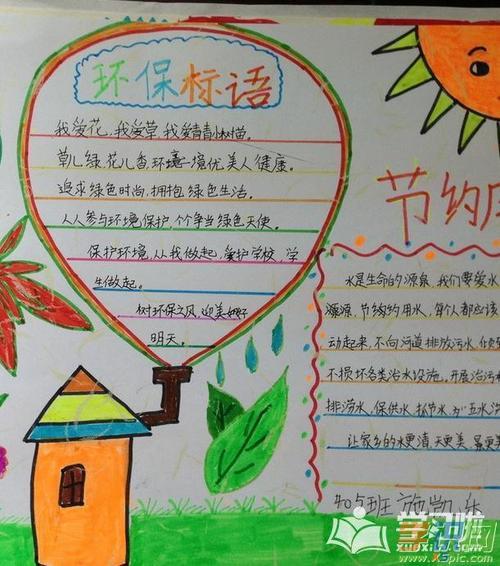 环保标语
我爱花,我爱草,我爱青青小树苗。
草儿绿,花儿香,环境一境优美人健康。
追求绿色时尚,拥抱绿色生活。
人人参与环境保护,个个争当绿色天使。
保护环境,从我做起,爱护学校,学
生做起。
树环保之风,迎美好
明天。
节约用
水是生命的源泉,我们要爱水
源源,节约用水,每个人都应该
动起来,不向河道排放污水,
不损坏各类治水设施,开展治污
排涝水、保供水、抓节水
让家乡的水更清,天更美,
405班
学习啦
xuexila.com
www.x5pic.com